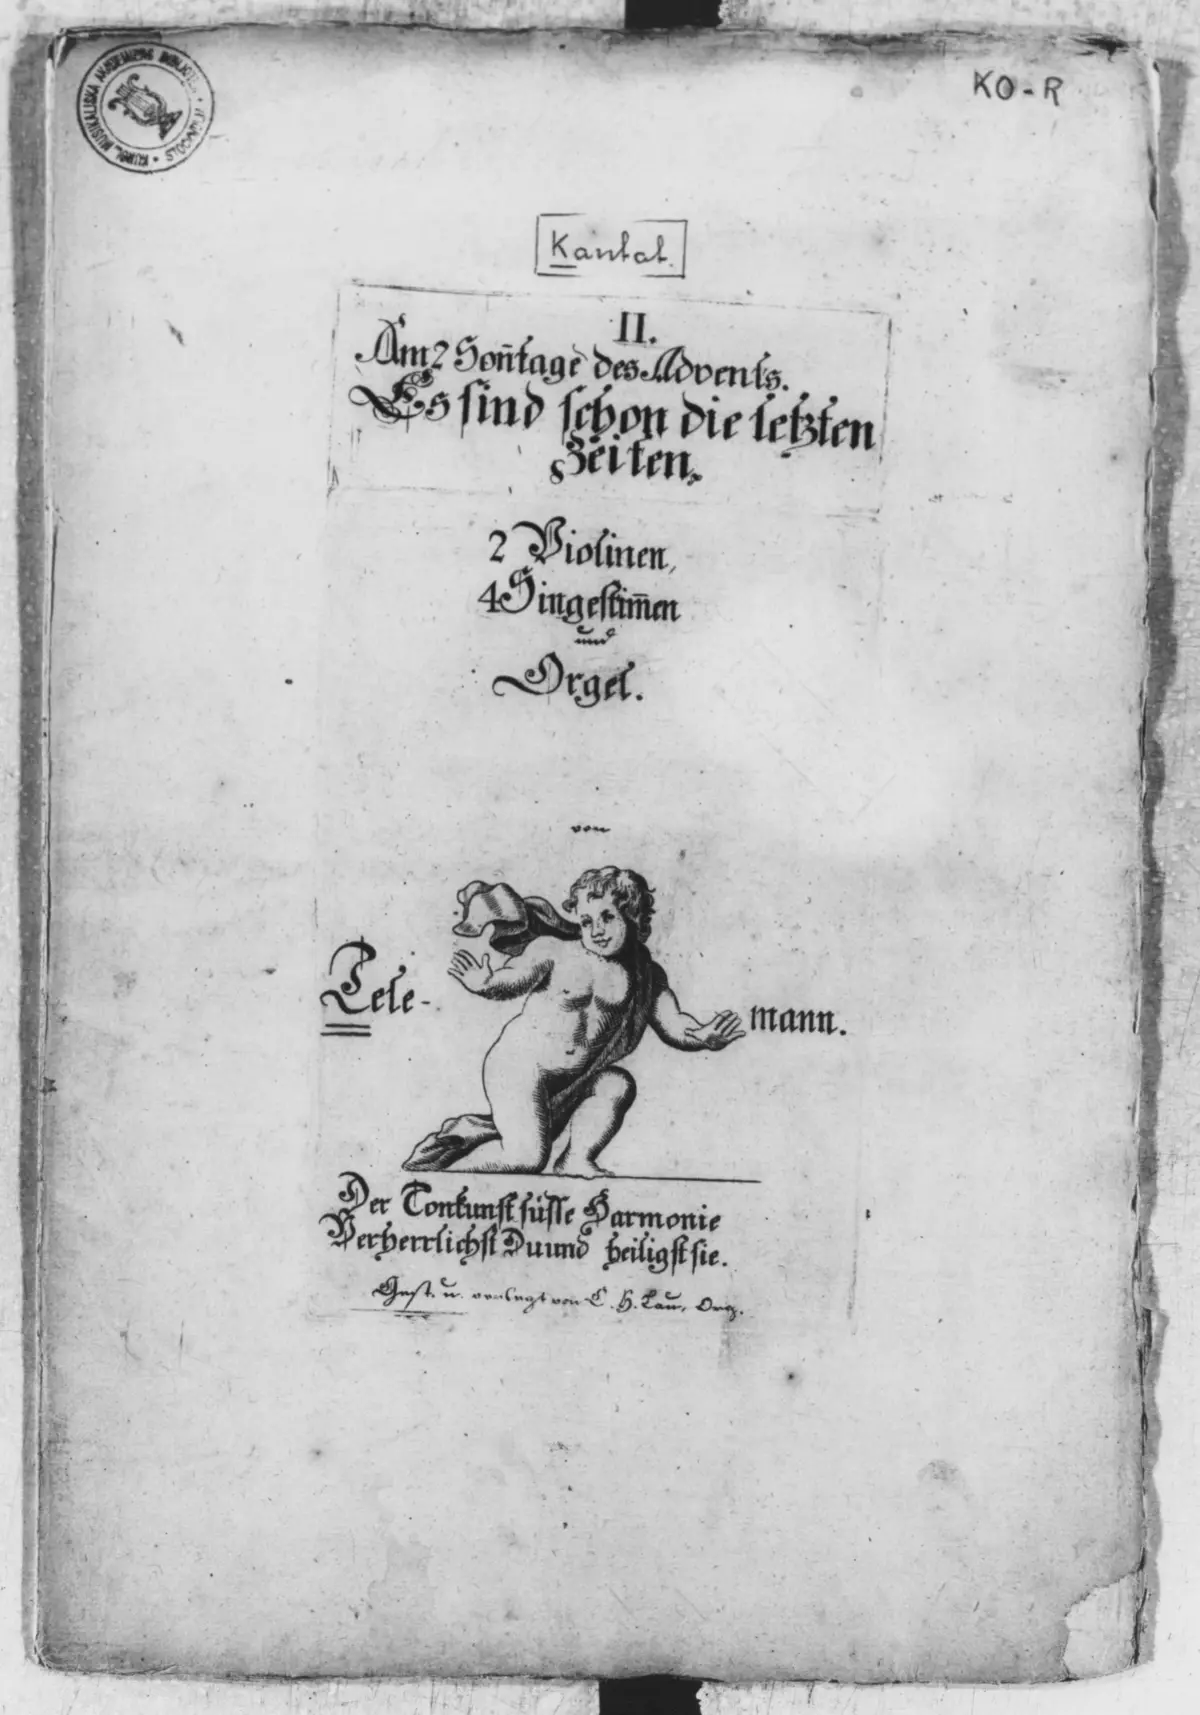 KUNGL. MUSIKALISKA AKADEMIENS BIBLIOTEK
KO-R
Kantat.
II.
Am 2 Son̄tage des Advents.
Es sind schon die letzten
Zeiten.
2 Violinen,
4 Singestim̄en
und
Orgel.
von
Tele-
mann.
Der Tonkunst süsse Harmonie
Verherrlichst Du und heiligst sie.
Gest. u. verlegt von C. H. Lau, Org.